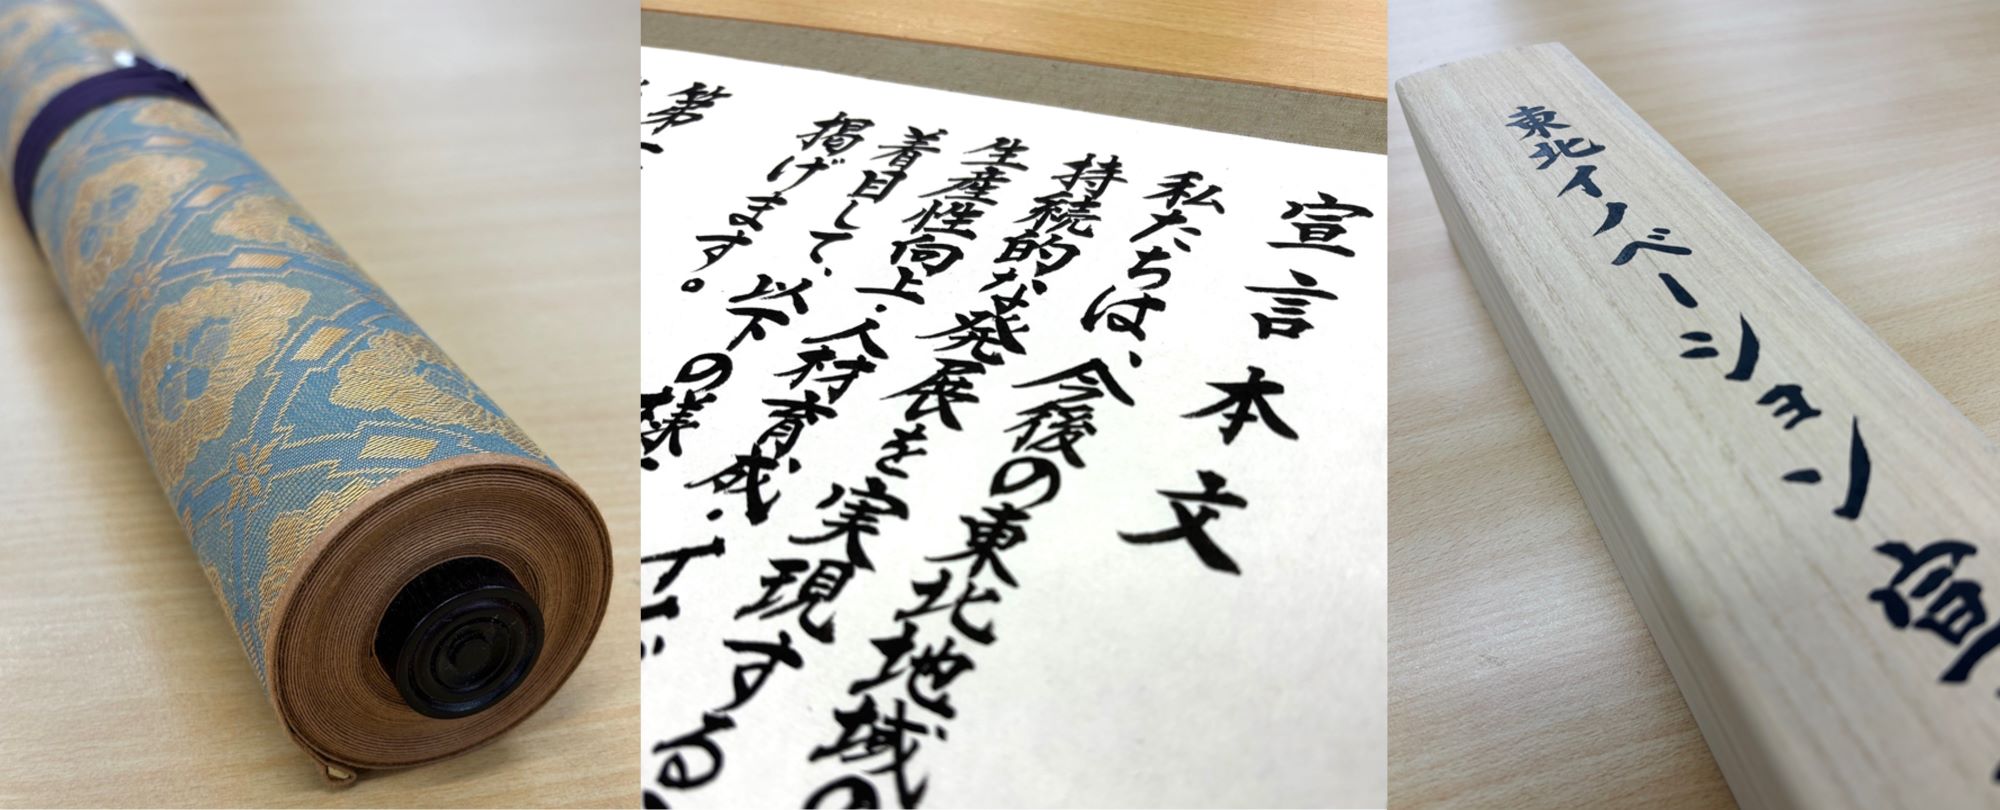 宣言本文
私たちは、今後の東北地域の
持続的な発展を実現する
生産性向上・人材育成・イ
着目して、以下の様
掲げます。
第一
東北イノベーション宣